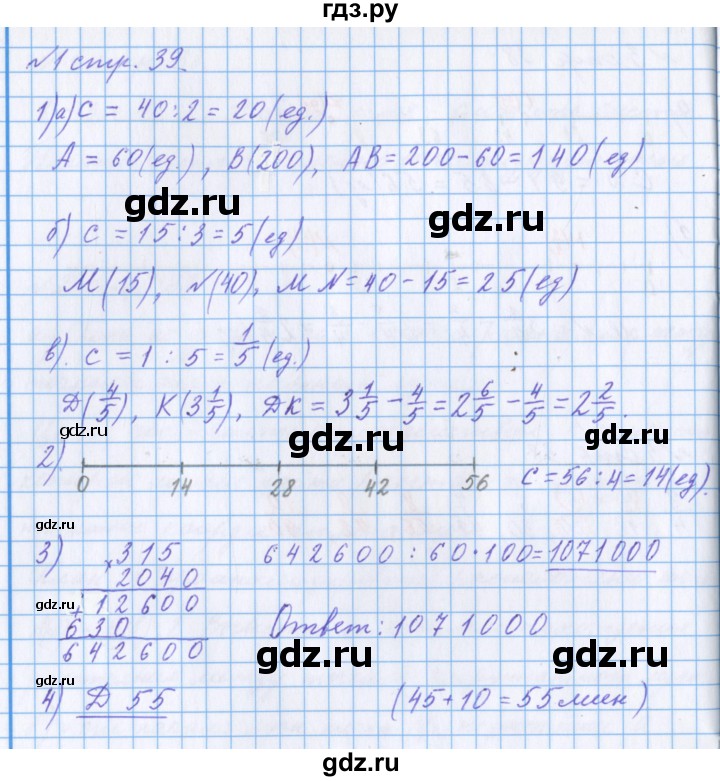 гдз.ру
№1 стр. 39
1) а) С = 40 : 2 = 20 (ед.)
А = 60 (ед.), В(200), АВ = 200 - 60 = 140 (ед)
gdz.ru gdz.ru
б) С = 15 : 3 = 5 (ед)
М(15), N(40), МN = 40 - 15 = 25 (ед)
в). С = 1 : 5 = 1/5 (ед.)
Д(4/5), К(3 1/5), ДК = 3 1/5 - 4/5 = 2 6/5 - 4/5 = 2 2/5.
gdz.ru gdz.ru gdz.ru
2). 0 14 28 42 56 С = 56 : 4 = 14 (ед).
gdz.ru
3) × 315 642600 : 60 · 100 = 1071000
2040
gdz.ru + 12600 Ответ: 1071000
630
642600 gdz.ru gdz.ru
gdz.ru
4) Д 55 (45 + 10 = 55 мин)
gdz.ru gdz.ru